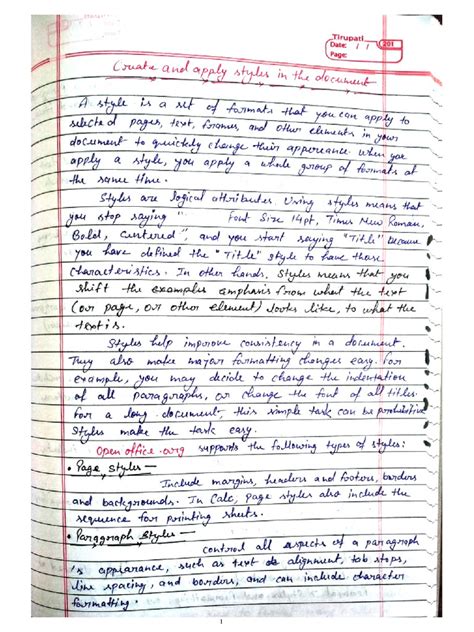 Tirupati
Date: / / 201
Page:
Create and apply styles in the document
A style is a set of formats that you can apply to
selected pages, text, frames, and other elements in your
document to quickly change their appereance when you
apply a style, you apply a whole group of formats at
the same time.
Styles are logical attributes. Using styles means that
you stop saying " font Size 14pt, Times New Roman,
Bold, Centered", and you start saying "Title" because
you have defined the "Title" style to have those
characteristics. In other hands, Styles means that you
shift the examples emphasis from what the text
(or page, or other element) looks like, to what the
text is.
Styles help improve consistency in a document.
They also make major formatting changes easy. For
example, you may decide to change the indentation
of all paragraphs, or change the font of all titles.
for a long document, this simple task can be prohibitive
Styles make the task easy.
Open office.org supports the following types of styles:
• Page styles —
Include margins, headers and footers, borders
and backgrounds. In Calc, page styles also include the
sequence for printing sheets.
• Paragraph styles —
control all aspects of a paragraph
's appearance, such as text alignment, tab stops,
line spacing, and borders, and can include character
formatting.
1